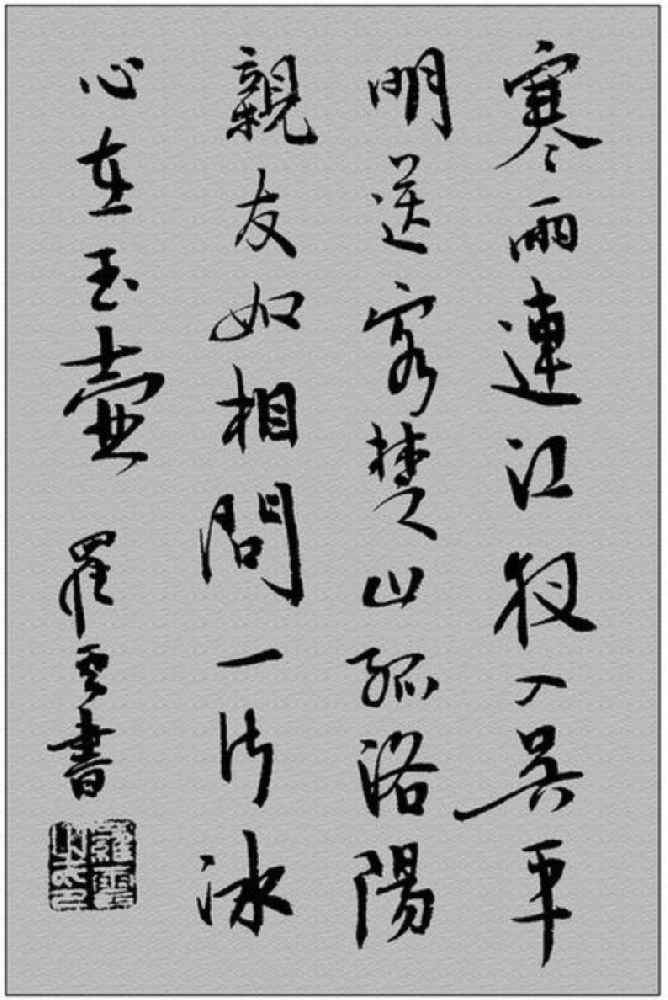 寒雨連江夜入吳平
明送客楚山孤洛陽
親友如相問一片冰
心在玉壺 羅雲書
羅雲